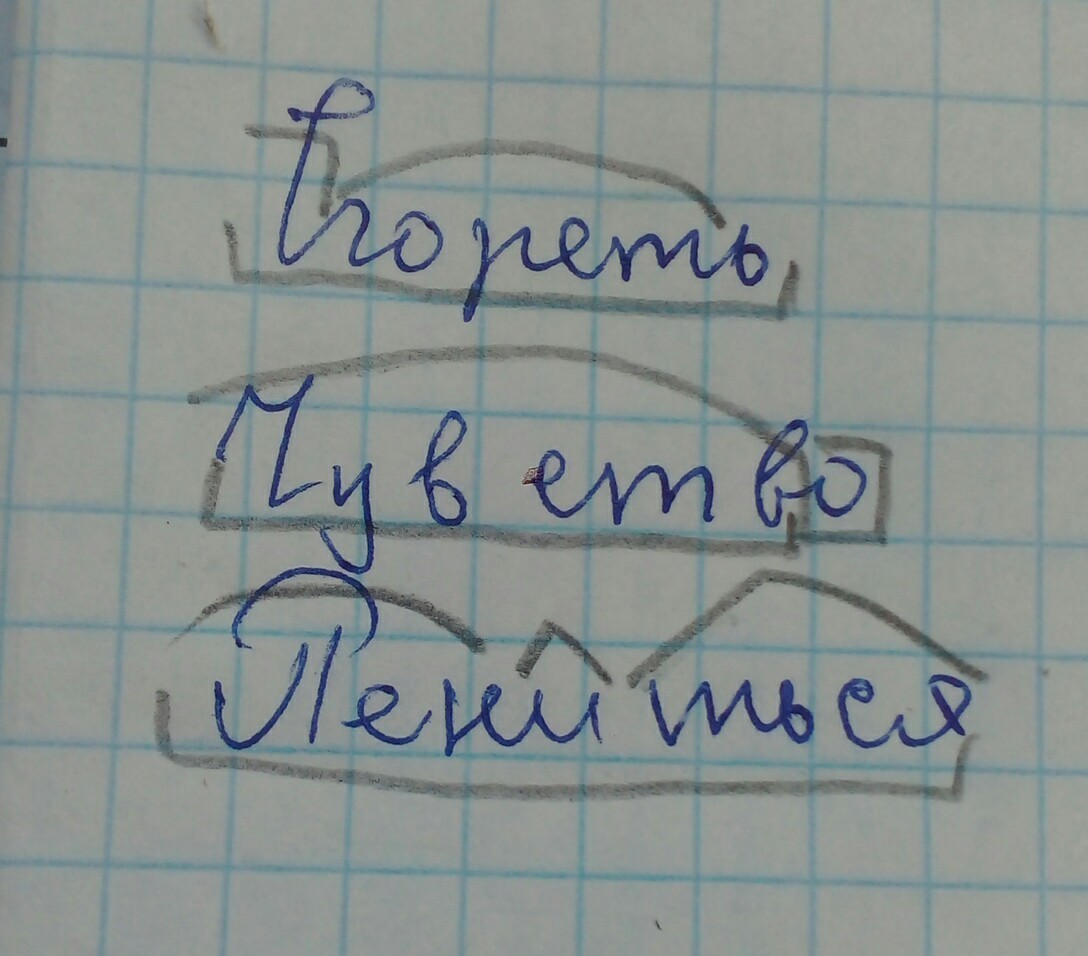 Сгореть
Чувство
Пениться